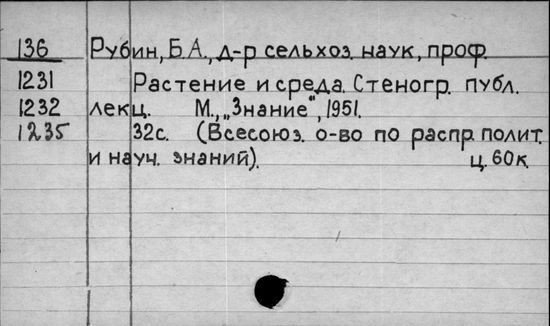 136 Рубин, Б.А., д-р сельхоз. наук, проф.
1231 Растение и среда. Стеногр. публ.
1232 лекц. М., „Знание", 1951.
1235 32с. (Всесоюз. о-во по распр. полит.
и науч. знаний). ц. 60к.